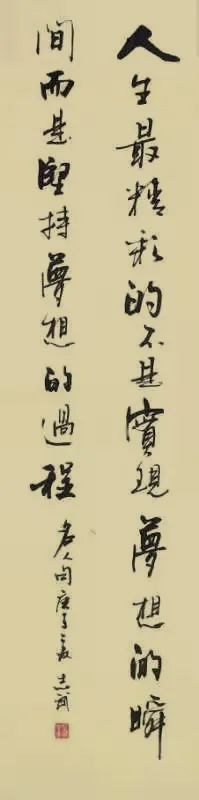 人生最精彩的不是實現夢想的瞬
間而是堅持夢想的過程
名人句庚子